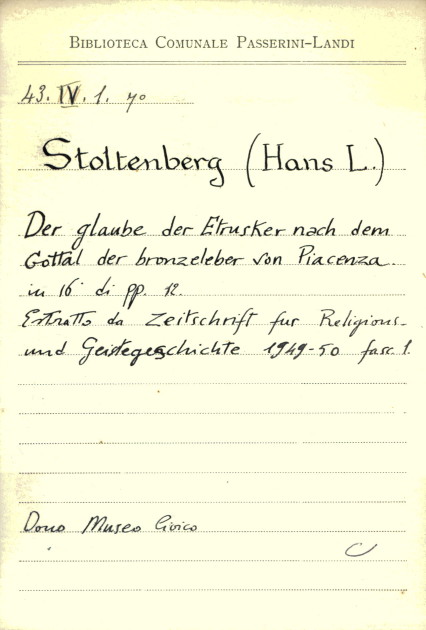 BIBLIOTECA COMUNALE PASSERINI-LANDI
43. IV. 1. 70
Stoltenberg (Hans L.)
Der glaube der Etrusker nach dem
Gottal der bronzeleber von Piacenza.
in 16° di pp. 12.
Estratto da Zeitschrift fur Religions-
und Geistegeschichte 1949-50 fasc. 1.
Dono Museo Civico